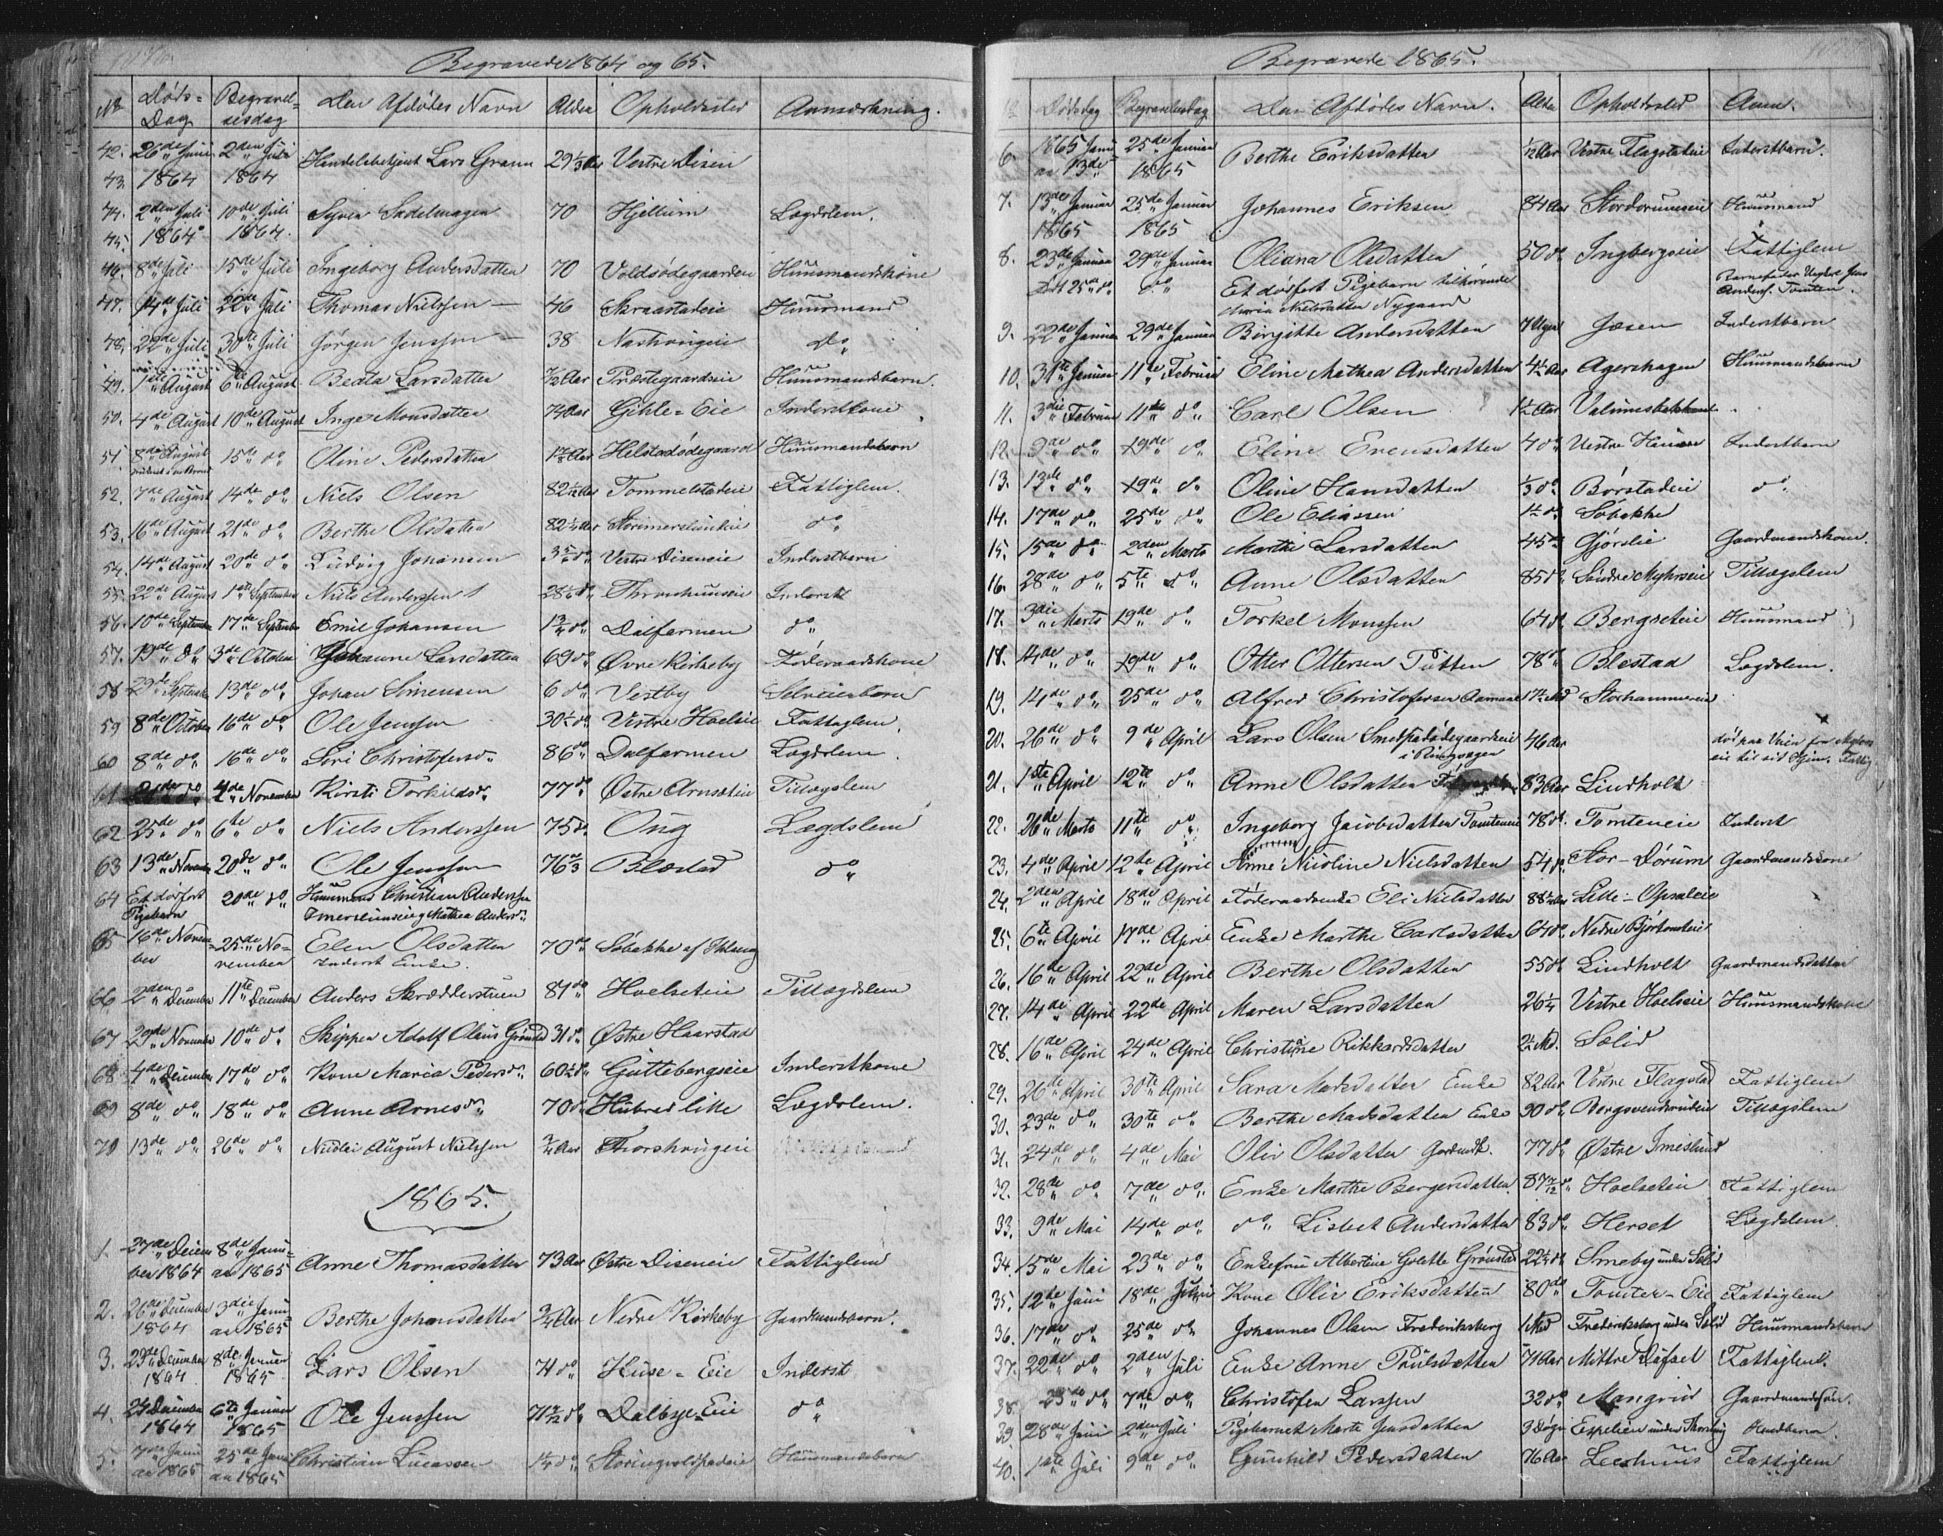 Begravede 1864 og 65.
No Døds-Dag Begravelsesdag Den Afdødes Navn Alder Opholdssted Anmærkning.
42. 26de Juni 1864 2den Juli 1864 Lars Grann 29 Vestre Disen
43.
44. 2den Juli 1864 10de Juli 1864 Syver Sadelmagen 70 Hjellum Lægdslem.
45.
46. 8de Juli 15de Juli Ingeborg Andersdatter 70 Voldsødegaarden Huusmandskone
47. 14de Juli 22de Juli Thomas Nielssen 46 Skraastadeie Huusmand
48. 22de Juli 30te Juli Jørgen Jenssen 38 do
49. 1ste August 6te August Beata Larsdatter Aar Præstegaardseie Huusmandsbarn.
50. 4de August 10de August Inge Monsdatter 74 Aar Gihle-Eie Inderstkone
51. 8de August 15de do Oline Pedersdatter Aar Helstadødegaard Huusmandsbarn
52. 7de August 14de do Niels Olsen 82 Aar Tommelstadeie Fattiglem.
53. 16de August 21de do Berthe Olsdatter 82 Aar do
54. 14de August 20de do Ludvig Johansen do Vestre Diseneie Inderstbarn
55. 22de August 1ste September Niels Anderssen 28 do Inderst
56. 10de September 17de September Emil Johansen do Dalfarmen do
57. 19de do 3de October Johanne Larsdatter 69 do Øvre Kirkeby Føderaadskone
58 29de September 13de do Johan Simensen 6 do Vestby Selveierbarn
59 8de October 16de do Ole Jenssen 30 do Vestre Hoelseie Fattiglem.
60 8de do 16de do Siri Christofersdr 86 do Dalfarmen Lægdslem.
61 do 4de November Kirsti Torkildsdr. 77 do Østre Arnseteie Tillægslem
62 25de do 6te do Niels Anderssen 75 do Oug Lægdslem
63 13de November 20de do Ole Jenssen 76 Blæstad do
64 Et dødfødt Pigebarn 20de do Huusmand Christian Anderssen Imerslundeie og Mathea Andersdr.
65 16de November 25de November Elen Olsdatter Inderst Enke. 70 do Søbakke af Ihlang
66 2den December 11te December Anders Skrædderstuen 81 do Hoelseteie Tillægslem
67 29de November 10de do Skipper Adolf Olaus Grønstad 31 do Østre Haarstad
68 4de December 17de do Kone Maria Pedersdr. 60 do Guttebergseie Inderstkone
69 8de do 18de do Anne Arnesdr. 70 do Hubred lille Lægdslem.
70 13de do 26de do Nicolai August Nielssen Aar Thorshougeie
1865.
1. 27de December 1864 8de Januar 1865 Anne Thomasdatter 73 Aar Østre Diseneie Fattiglem
2. 26de December 1864 3die Januar 1865 Berthe Johansdatter Aar Nedre Kirkeby Gaardmandsbarn.
3. 29de December 1864 8de Januar 1865 Lars Olsen 74 do Huse-Eie Inderst
4. December 1864 6te Januar 1865 Ole Jenssen 71 do Dalbye-Eie do
5. 7de Januar 1865 25de Januar 1865 Christian Lucassen do Huusmandsbarn
Begravede 1865.
Dødsdag Begravelsesdag Den Afdødes Navn. Alder Opholdssted Anm.
6. 1865 Januar 13de 25de Januar 1865 Berthe Eriksdatter Aar Vestre Flagstadeie Inderstbarn.
7. 13de Januar 1865 25de Januar 1865 Johannes Eriksen 84 Aar Stordorumseie Huusmand
8. 23de Januar 29de Januar Oliana Olsdatter 50 do Ingbergseie Fattiglem
25de do do Et dødfødt Pigebarn tilhørende Maria Nielsdatter Nygaard Barnefader Jens Anders. Tomten.
9. 22de Januar 29de Januar Birgitte Andersdatter 7 Uger Jøsen Inderstbarn
10. 31te Januar 11te Februar Eline Mathea Andersdatter 4 Aar Agershagen Huusmandsbarn
11. 3die Februar 11te do Carl Olsen Aar
12. 9de do 19de do Eline Evensdatter 4 do Vestre Inderstbarn
13. 13de do 19de do Oline Hansdatter do Børstadeie do
14. 17de do 25de do Ole Eliassen do Søbakke
15. 15de do 2den Marts Marthe Larsdatter 45 do Gjørslie Gaardmandskone.
16. 28de do 5te do Anne Olsdatter 85 do Søndre Myhrseie Tillægslem
17. 3die Marts 19de do Torkel Monssen 64 do Bergseteie Huusmand
18. 14de do 19de do Otter Ottersen Tøtten 78 do Blæstad Lægdslem.
19. 14de do 25de do Alfred Christofersen Aamodt Md Storhammereie
20. 26de do 9de April Lars Olsen Smedstadødegaardseie i Ringsager 46 Aar død paa Veien fra eie til sit Hjem. Fattig
21. 1ste April 12te do Anne Olsdatter 83 Aar Lindholt
22. 26de Marts 11te do Ingeborg Jacobsdatter Tomteneie 78 do Tomteneie Inderst
23. 4de April 12te April Anne Nicoline Nielsdatter 54 do Stor-Dørum Gaardmandskone
24. 2den April 18de April Føderaadsenke Eli Nielsdatter 88 Aar Lille-Opsaleie
25. 6te April 17de April Enke Marthe Carlsdatter 64 do Nedre Bjørtomteie
26. 16de April 22de April Berthe Olsdatter 55 do Lindholt Gaardmandsdatter
27. 14de April 22de April Maren Larsdatter 26 1/4 Vestre Hoelseie Huusmandskone
28. 16de April 24de April Christine Rikkardsdatter Md. Sælid
29. 26de April 30te April Sara Madsdatter Enke 82 Aar Vestre Flagstad Fattiglem
30. 23de do 30te do Berthe Madsdatter Enke 90 do Tillægslem
31. 24de do 4de Mai Oliv Olsdatter 77 do Østre Imeslund
32. 28de do 7de do Enke Marthe Bergersdatter 87 do Hoelseteie Fattiglem
33. 9de Mai 14de do do Lisbet Andersdatter 83 do Herset Lægdslem.
34. 15de Mai 23de do Enkefru Albertine Golette Grønstad 22 do Smeby under Sælid
35. 12te Juni 18de Juni Kone Olie Eriksdatter 80 do Tomter-Eie Fattiglem
36. 17de do 25de do Johannes Olsen Frederiksberg 1 Md Frederiksberg under Sælid Huusmandsbarn
37. 22de do 2den Juli Enke Anne Poulsdatter 71 Aar Mittre Fattiglem.
38. 23de do 7de do Christofer Larssen 32 do Mangrud Gaardmandssøn.
39 28de Juni 2den Juli Pigebarnet Marte Jensdatter 9 Døgn Espelien under
40. 1ste Juli 9de do Gunhild Pedersdatter 76 Aar Leershuus Fattiglem